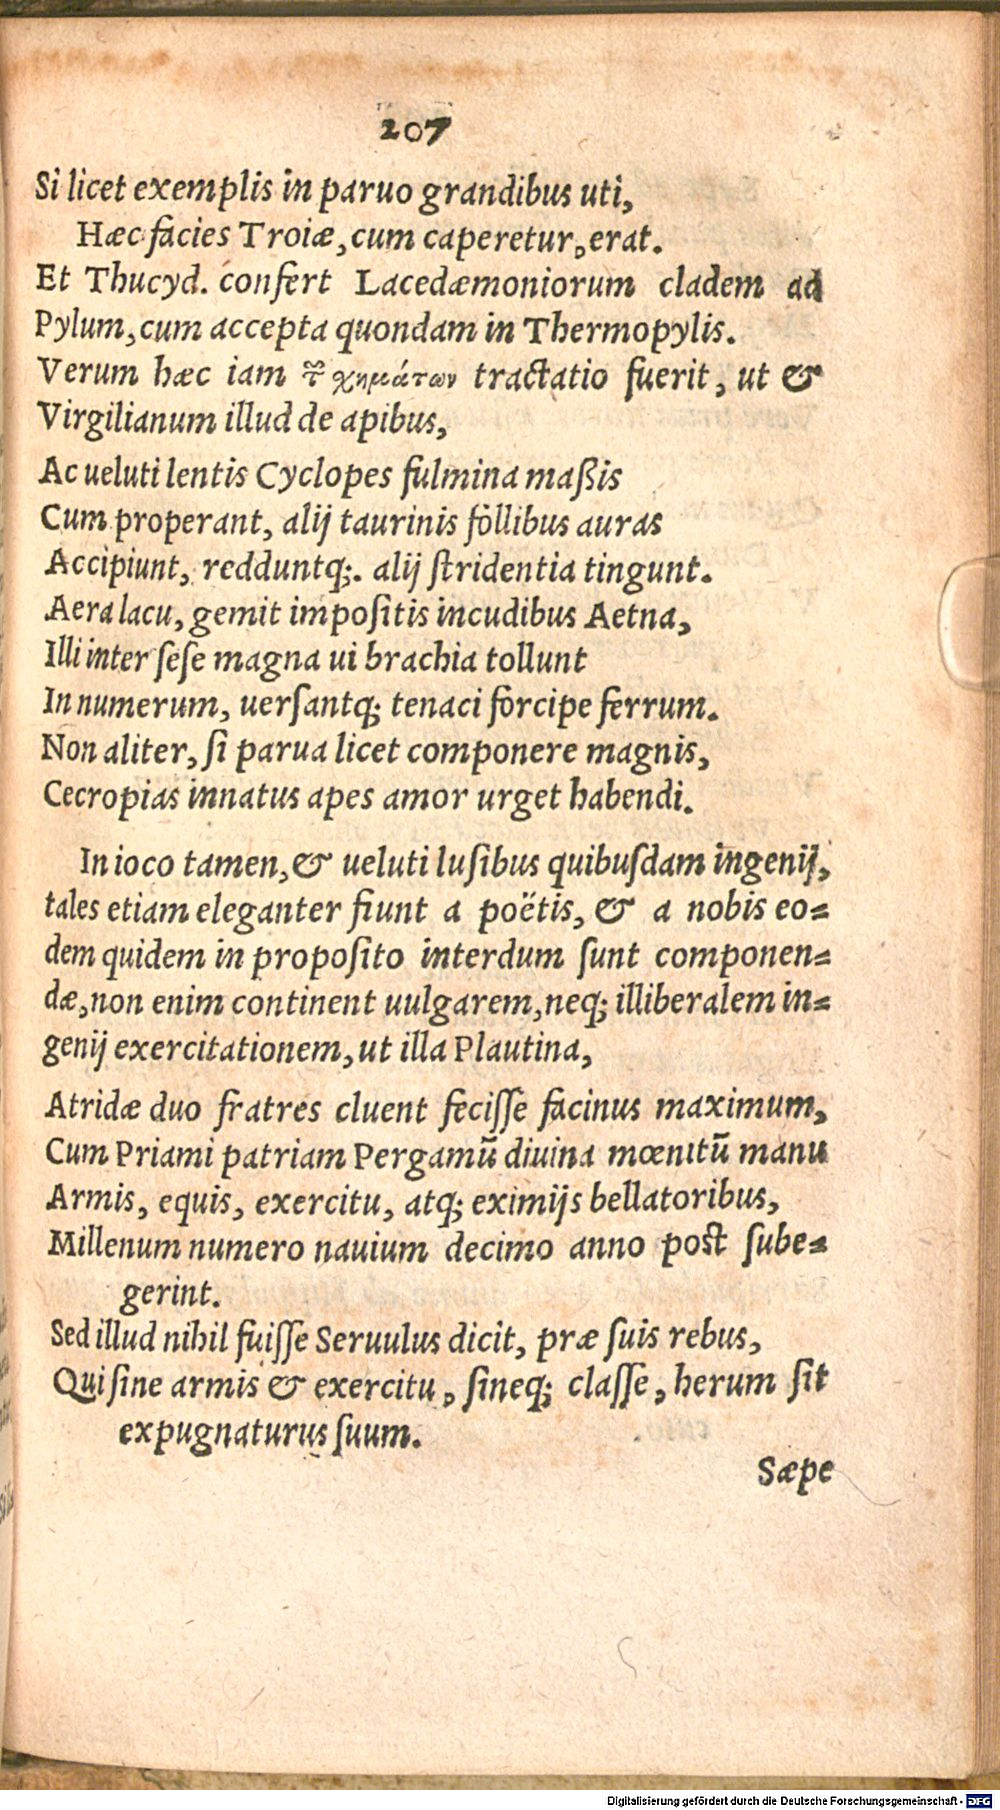 207
Si licet exemplis in paruo grandibus uti,
Hæc facies Troiæ, cum caperetur, erat.
Et Thucyd. confert Lacedæmoniorum cladem ad
Pylum, cum accepta quondam in Thermopylis.
Verum hæc iam χημάτων tractatio fuerit, ut &
Virgilianum illud de apibus,
Ac ueluti lentis Cyclopes fulmina maßis
Cum properant, alij taurinis follibus auras
Accipiunt, redduntq;. alij stridentia tingunt.
Aera lacu, gemit impositis incudibus Aetna,
Illi inter sese magna ui brachia tollunt
In numerum, uersantq; tenaci forcipe ferrum.
Non aliter, si parua licet componere magnis,
Cecropias innatus apes amor urget habendi.
In ioco tamen, & ueluti lusibus quibusdam ingenij,
tales etiam eleganter fiunt a poëtis, & a nobis eo=
dem quidem in proposito interdum sunt componen=
dæ, non enim continent uulgarem, neq; illiberalem in=
genij exercitationem, ut illa Plautina,
Atridæ duo fratres cluent fecisse facinus maximum,
Cum Priami patriam Pergamū diuina mœnitū manu
Armis, equis, exercitu, atq; eximijs bellatoribus,
Millenum numero nauium decimo anno post sube=
gerint.
Sed illud nihil fuisse Seruulus dicit, præ suis rebus,
Qui sine armis & exercitu, sineq; classe, herum sit
expugnaturus suum.
Sæpe
Digitalisierung gefördert durch die Deutsche Forschungsgemeinschaft - DFG